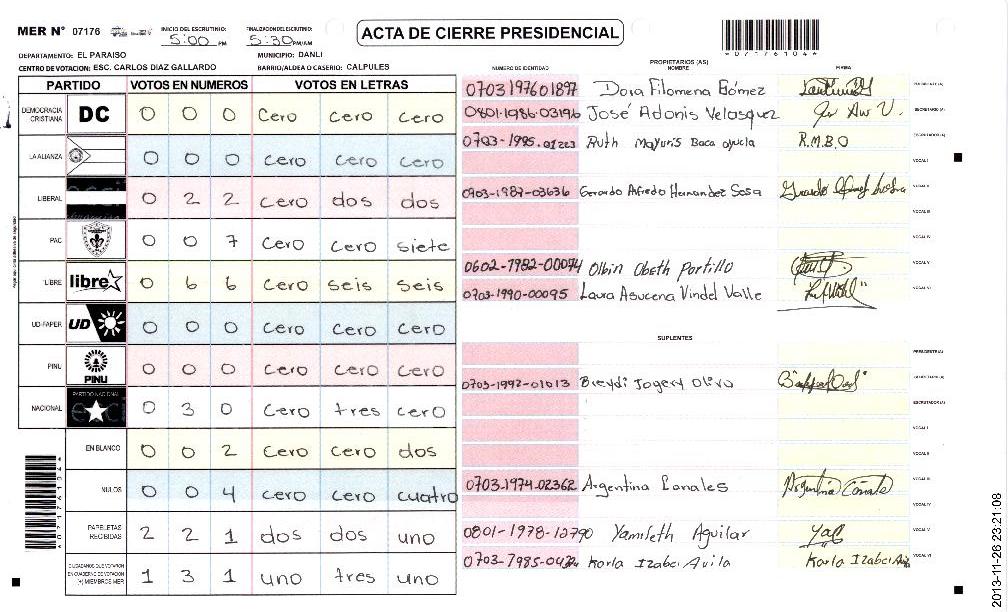 MER N° 07176 INICIO DEL ESCRUTINIO: 5:00 PM FINALIZACION DEL ESCRUTINIO: 5:30 PM/AM
ACTA DE CIERRE PRESIDENCIAL
*07176104*
DEPARTAMENTO: EL PARAISO MUNICIPIO: DANLI
CENTRO DE VOTACION: ESC. CARLOS DIAZ GALLARDO BARRIO/ALDEA O CASERIO: CALPULES
PARTIDO VOTOS EN NUMEROS VOTOS EN LETRAS
DEMOCRACIA CRISTIANA DC 0 0 0 Cero Cero Cero
LA ALIANZA 0 0 0 Cero Cero Cero
LIBERAL 0 2 2 Cero dos dos
PAC 0 0 7 Cero Cero siete
LIBRE libre 0 6 6 Cero seis seis
UD-FAPER UD 0 0 0 Cero Cero Cero
PINU PINU 0 0 0 Cero Cero Cero
NACIONAL PARTIDO NACIONAL 0 3 0 Cero tres cero
EN BLANCO 0 0 2 Cero Cero dos
NULOS 0 0 4 Cero cero cuatro
PAPELETAS RECIBIDAS 2 2 1 dos dos uno
CIUDADANOS QUE VOTARON EN CUADERNO DE VOTACION (+) MIEMBROS MER 1 3 1 uno tres uno
PROPIETARIOS (AS)
NUMERO DE IDENTIDAD NOMBRE FIRMA
0703197601897 Dora Filomena Gómez PRESIDENTE(A)
0801-1986-03196 José Adonis Velasquez SECRETARIO (A)
0703-1985-01223 Ruth Mayuris Baca oyuela R.M.B.O ESCRUTADOR (A)
VOCAL I
0703-1987-03636 Gerardo Alfredo Hernandez Sosa VOCAL II
VOCAL III
VOCAL IV
0602-7982-00074 Olbin Obeth Portillo VOCAL V
0703-1990-00095 Laura Asucena Vindel Valle VOCAL VI
SUPLENTES
PRESIDENTE(A)
0703-1992-01013 Breydi Jogery Oliva SECRETARIO (A)
ESCRUTADOR (A)
VOCAL I
VOCAL II
0703-1974-02362 Argentina Canales VOCAL III
VOCAL IV
0801-1978-12790 Yamileth Aguilar VOCAL V
0703-7985-0422 Karla Izabel Avila Karla Izabel Avila VOCAL VI
2013-11-26 23:21:08